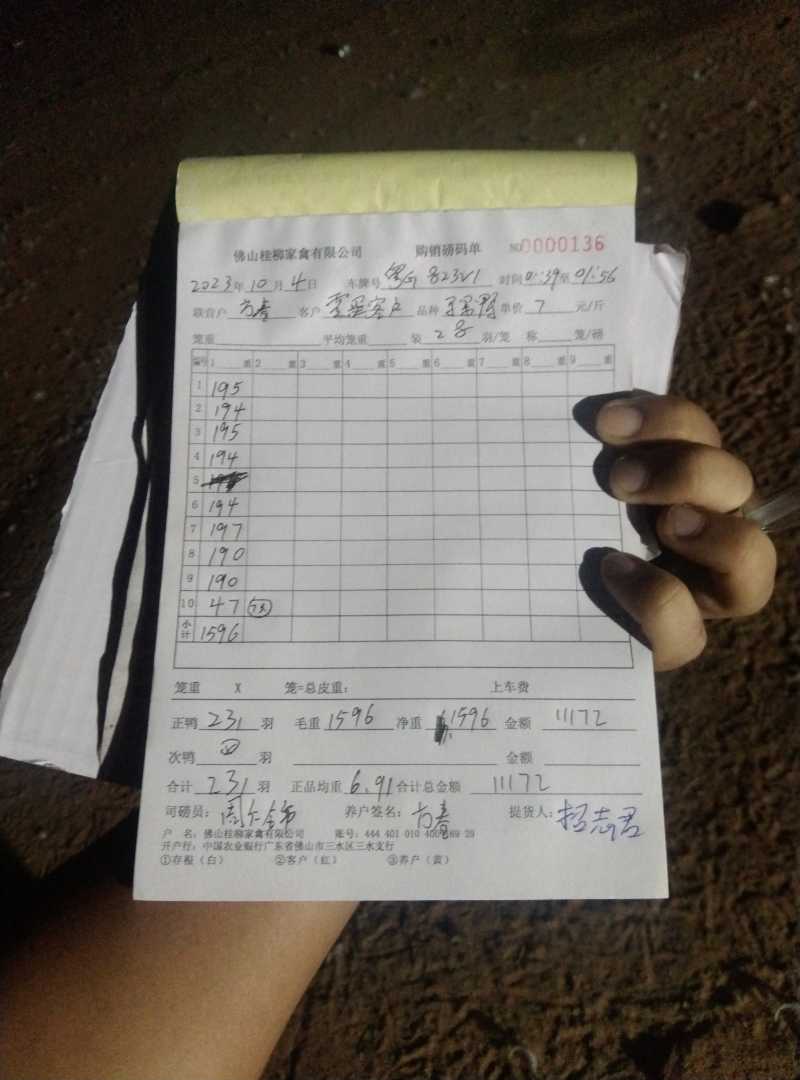 佛山桂柳家禽有限公司 购销磅码单 NO 0000136
2023年10月4日 车牌号 823V1 时间01:39至01:56
联营户 方春 客户 客户 品种 单价 7 元/斤
笼重 平均笼重 装 28 羽/笼 称 笼/磅
编号 1 重 2 重 3 重 4 重 5 重 6 重 7 重 8 重 9 重
1 195
2 194
3 195
4 194
5
6 194
7 197
8 190
9 190
10 47
小计 1596
笼重 X 笼=总皮重： 上车费
正鸭 231 羽 毛重 1596 净重 1596 金额 11172
次鸭 羽 金额
合计 231 羽 正品均重 6.91 合计总金额 11172
司磅员： 养户签名：方春 提货人：
户 名：佛山桂柳家禽有限公司 账号：444 401 010 400 69 29
开户行：中国农业银行广东省佛山市三水区三水支行
①存根（白） ②客户（红） ③养户（黄）